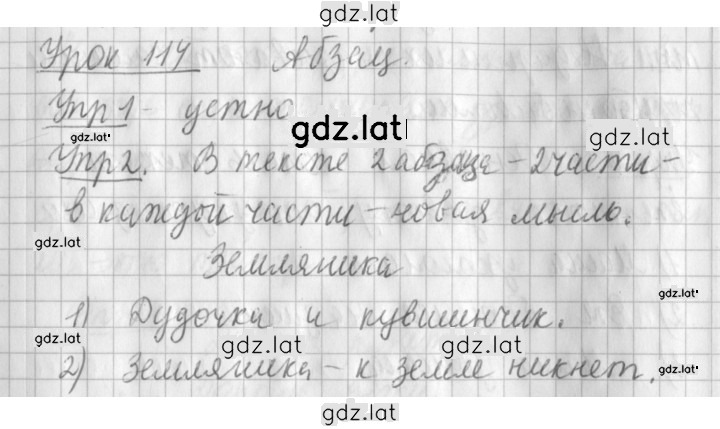 gdz.lat
Урок 114 Абзац.
Упр 1 - устно
gdz.lat
gdz.lat
gdz.lat
Упр2. В тексте 2 абзаца - 2 части -
в каждой части - новая мысль.
gdz.lat
Земляника
gdz.lat
1) Дудочка и кувшинчик.
gdz.lat
gdz.lat
gdz.lat
2) Земляника - к земле никнет.
gdz.lat
gdz.lat